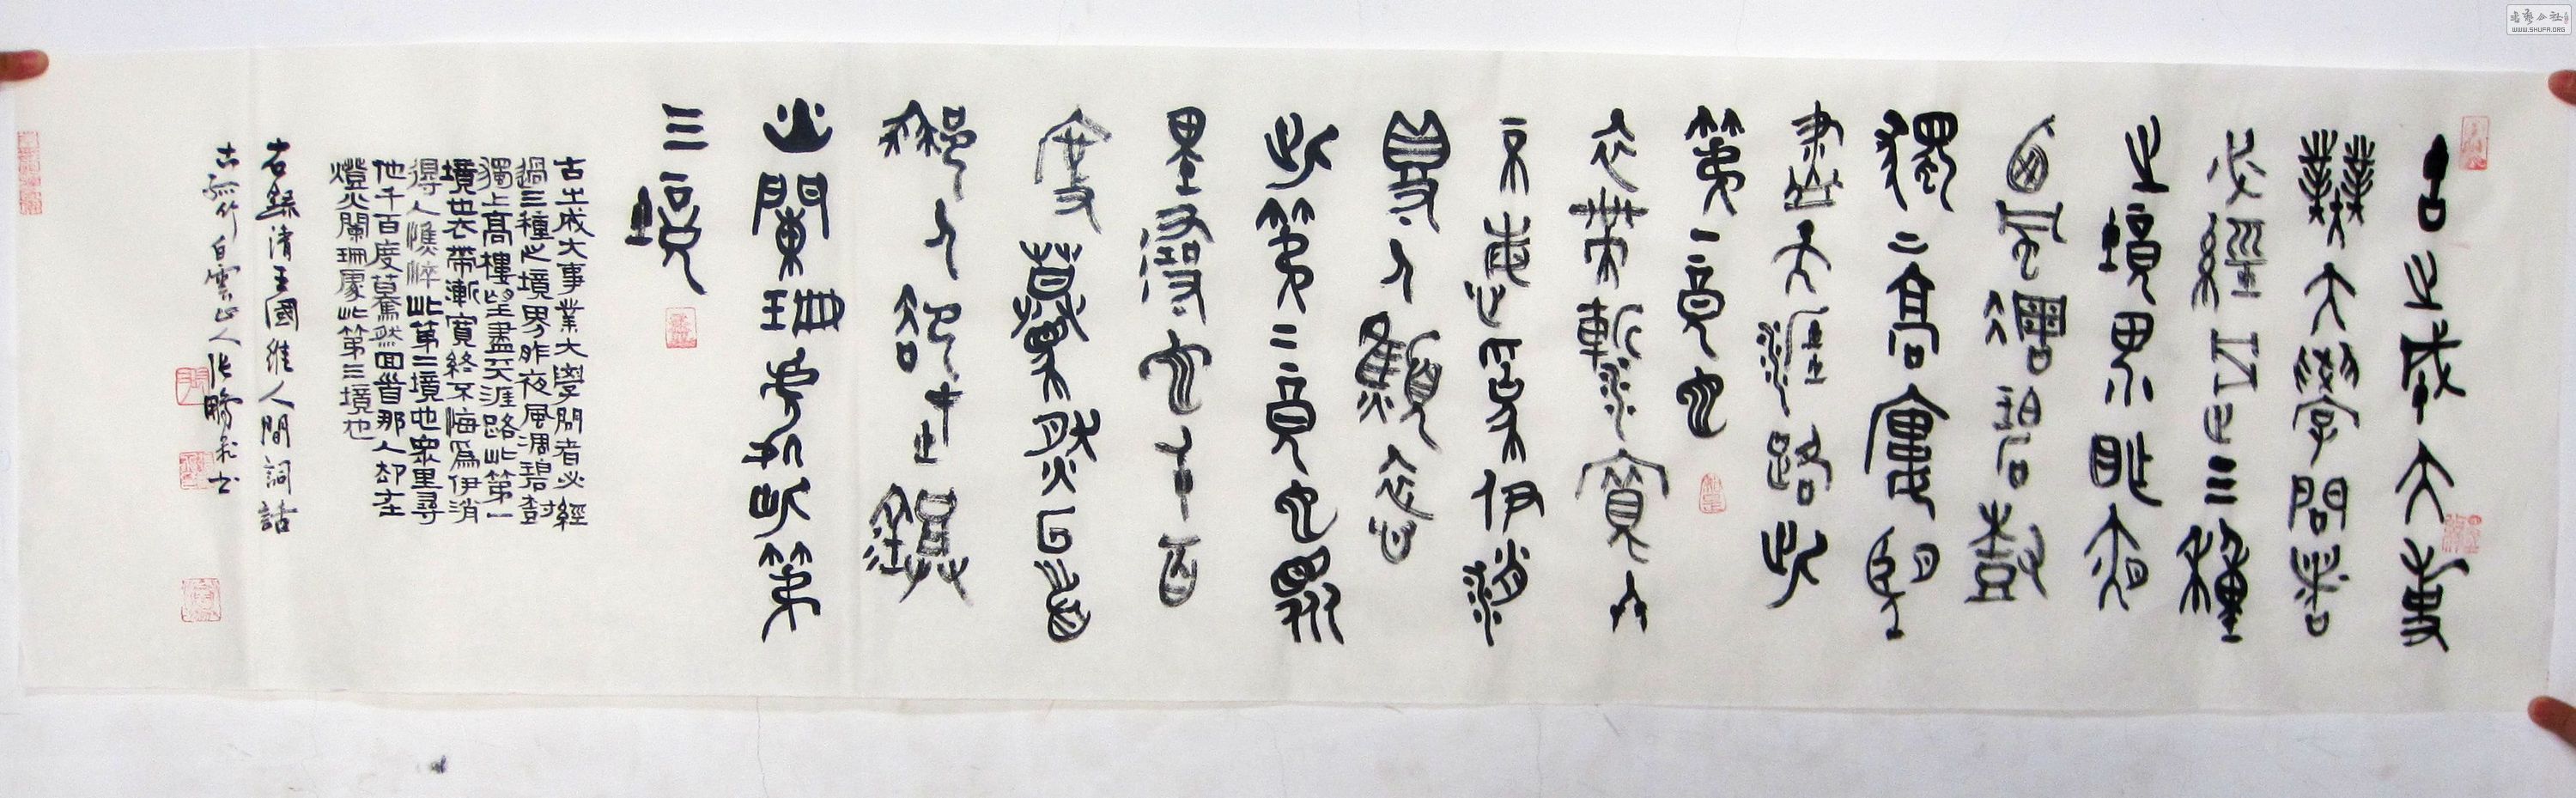 古之成大事
業大學問者
必經過三種
之境界昨夜
西風凋碧樹
獨上高樓望
盡天涯路此
第一境也
衣帶漸寬終
不悔為伊消
得人憔悴
此第二境也眾
里尋他千百
度驀然回首
那人卻在燈
火闌珊處此第
三境
古之成大事業大學問者必經
過三種之境界昨夜風凋碧樹
獨上高樓望盡天涯路此第一
境也衣帶漸寬終不悔為伊消
得人憔悴此第二境也眾里尋
他千百度驀然回首那人却在
燈火闌珊處此第三境也
右錄清王國維人間詞話
古孤竹白雲山人張勝利書
WWW.SHUFA.ORG